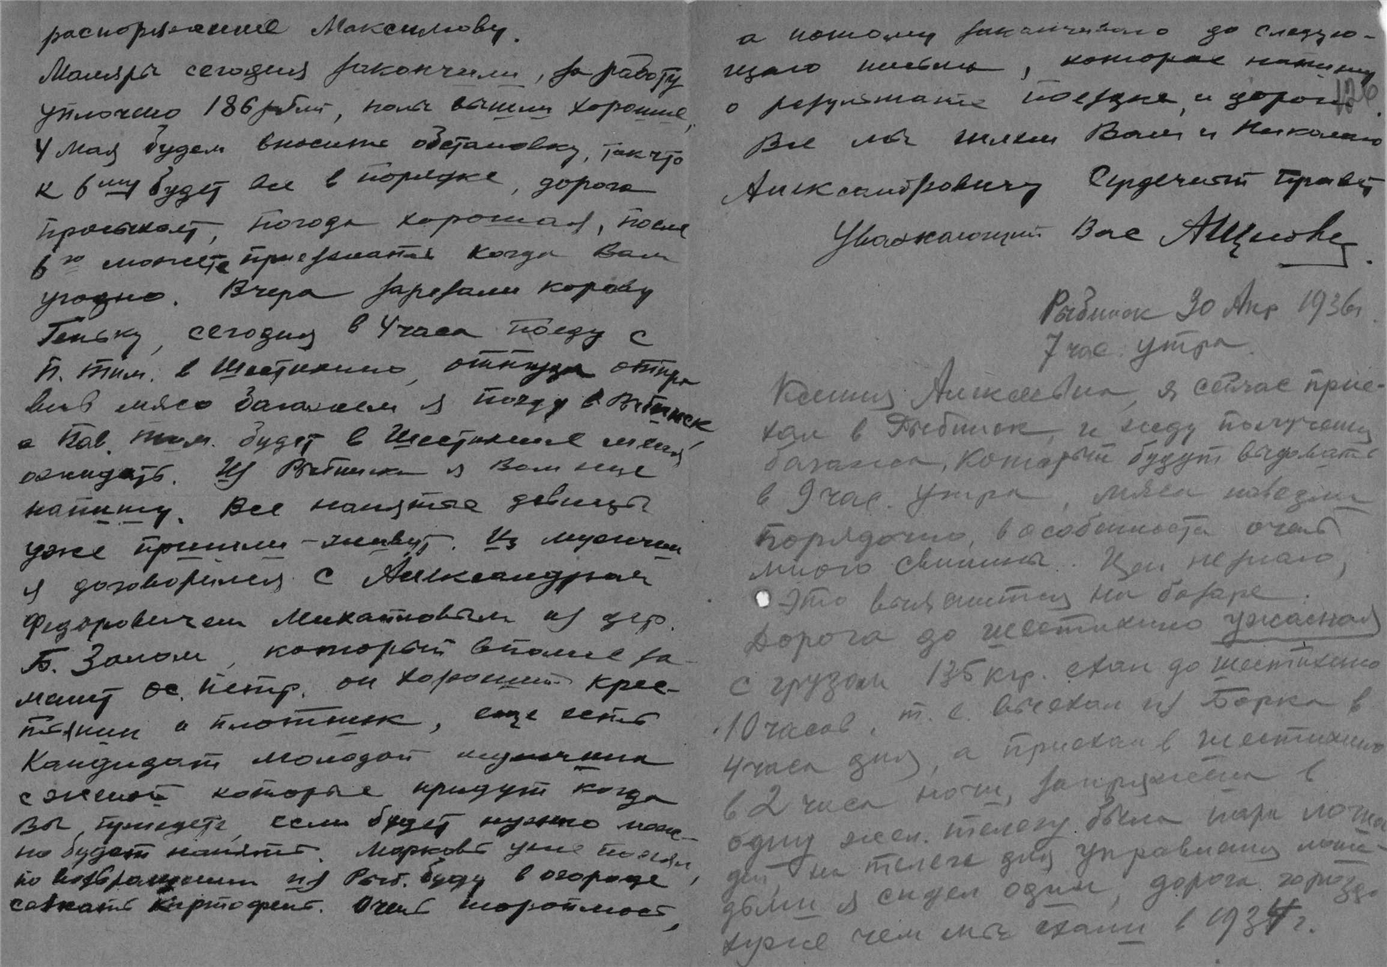 распоряжение Максимову.
Маляры сегодня закончили, за работу
уплочено 186 рублей, полы вышли хорошие,
4 мая будем вносить обстановку, так что
к 6му будет все в порядке, дорога
просыхает, погода хорошая, после
6го можете приезжать когда Вам
угодно. Вчера зарезали корову
Геньку, сегодня в 4 часа поеду с
П. Тим. в Шестихино, откуда отпра
вив мясо багажем я поеду в Рыбинск,
а Пав. Тим. будет в Шестихине меня
ожидать. Из Рыбинска я Вам еще
напишу. Все нанятые девицы
уже пришли - живут. Из мужчин
я договорился с Александром
Федоровичем из дер.
Б. Заломы, который вполне за-
менит Ос. Петр. он хороший крес-
тьянин и плотник, еще есть
кандидат молодой мужчина
с женой которые придут когда
Вы приедете, если будет нужно мож-
но будет нанять. Морковь уже посеяли,
по возвращении из Рыб. буду в огороде
сажать картофель. Очень тороплюсь,
а потому заканчиваю до следую-
щего письма, которое напишу
о результате поездки и дороги.
126
Все мы шлем Вам и Николаю
Александровичу Сердечный привет
Уважающий Вас
Рыбинск 30 Апр 1936 г.
7 час. утра.
Ксения Алексеевна, я сейчас прие-
хал в Рыбинск, и жду получения
багажа, который будут выдавать
в 9 час. утра, мяса навезли
порядочно, в особенности очень
много свинины. Цен не знаю,
это выяснится на базаре.
Дорога до Шестихино ужасная
с грузом 135 кгр. ехал до Шестихино
10 часов, т. е. выехал из Борка в
4 часа дня, а приехал в Шестихино
в 2 часа ночи, запряжена в
одну жел. телегу была пара лоша
дей, на телеге для управления лоша-
дьми я сидел один, дорога гораздо
хуже чем мы ехали в 1934 г.